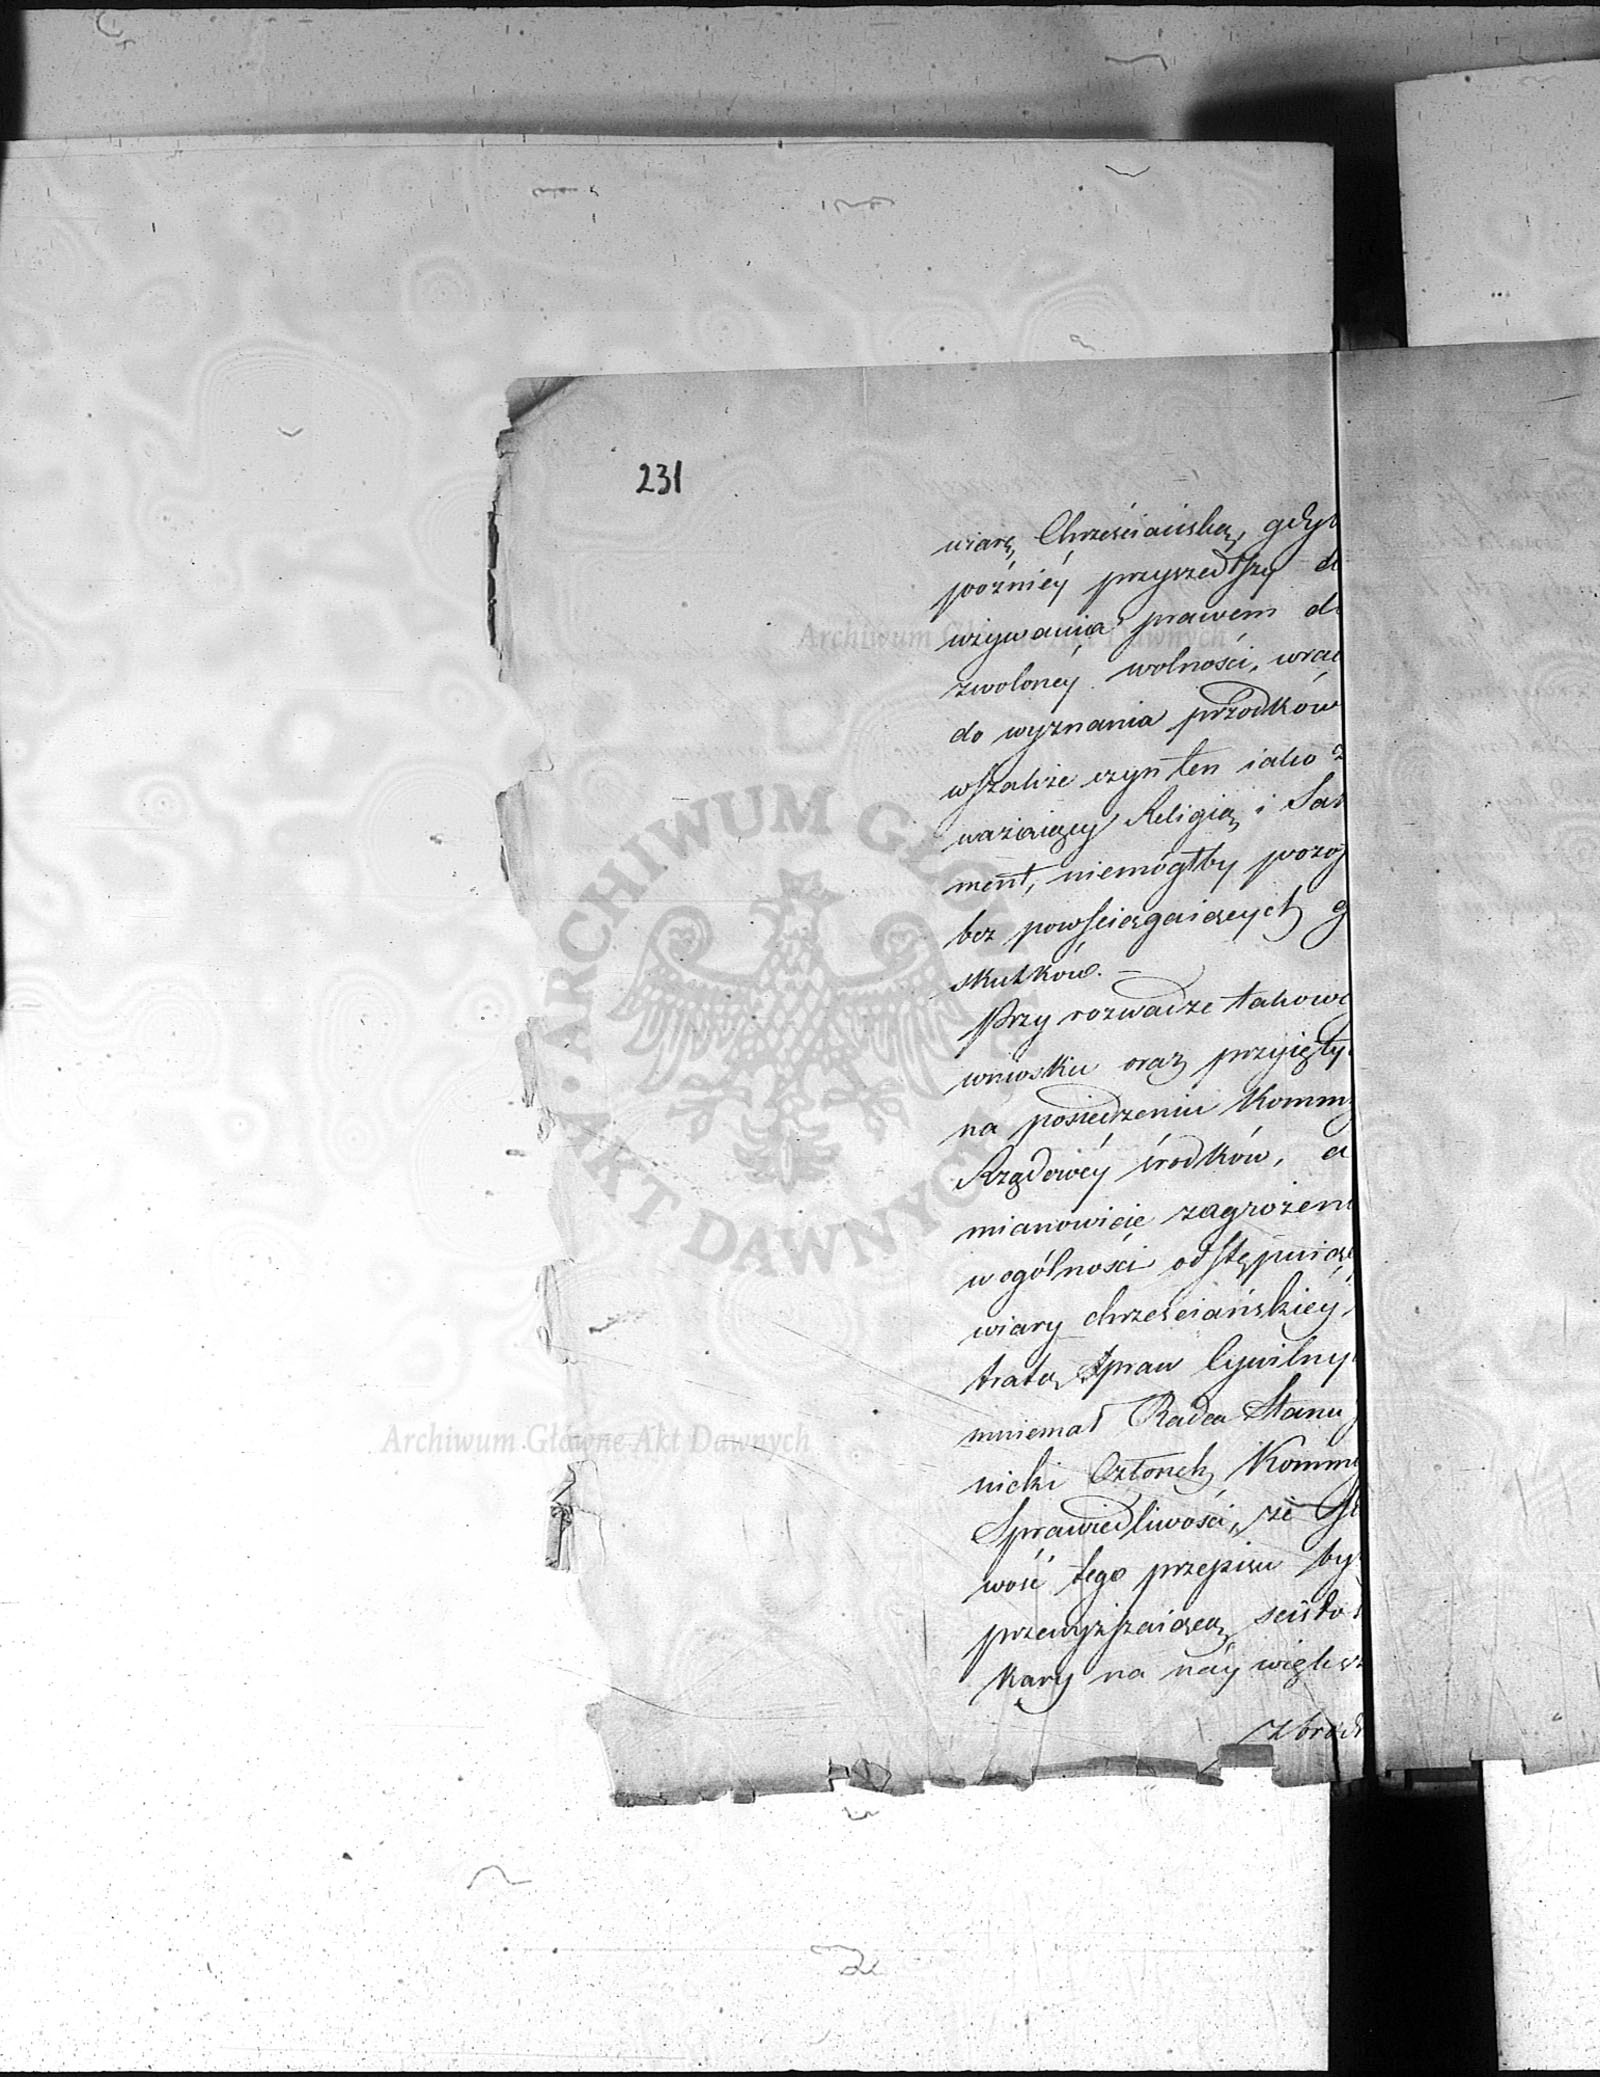 231
wiarę Chrześciańską, gdyb
poźniéy przyszedłszy d
używania prawem d
zwoloney wolności, wrac
do wyznania przodków
wszakże czyn ten iako z
ważaiący Religią i Sa
ment, niemógłby pozo
bez powściągaiących
skutków. —
Przy rozwadze takowe
wniosku oraz przyięty
na posiedzeniu Kommi
Rządowéy środków, a
mianowicie zagrożeni
w ogólności odstępuiąc
wiary chrześciańskiéy
tratą praw Cywilny
mniemał Radca Stanu
nicki Członek Kommi
Sprawiedliwości, że
wość tego przepisu by
przewyższaiącą ścisło
kary na náy więks
zbrod
Archiwum Główne Akt Dawnych
ARCHIWUM GŁÓWNE · AKT DAWNYCH
Archiwum Główne Akt Dawnych